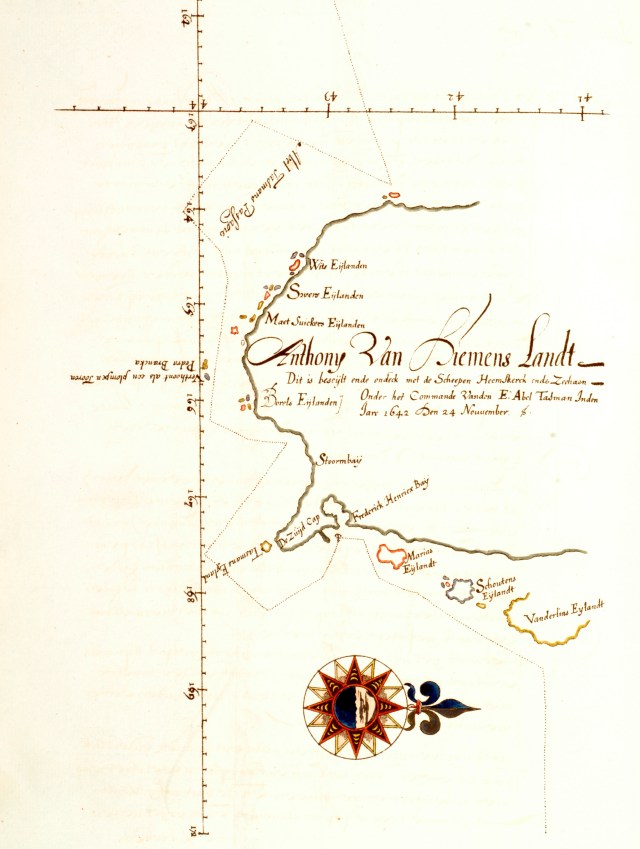 162
43
42
41
4
163
Abel Tasmans Passagie
164
Wits Eijlanden
Sweers Eijlanden
165
Maet Suickers Eijlanden
Anthony Van Diemens Landt
Pedra Brancka
Verthoont als een plompen Tooren
Dit is beseijlt ende ondeck met de Scheepen Heemskerck ende Zeehaen
Borels Eijlanden
Onder het Commande Vanden E. Abel Tasman Inden
166
Jare 1642 Den 24 Nouvember
Stoormbaij
Frederick Henricx Baÿ
167
De Zuijd Cap
Tasmans Eyland
Marias
Eijlandt
168
Schoutens
Eylandt
Vanderlins Eylandt
169